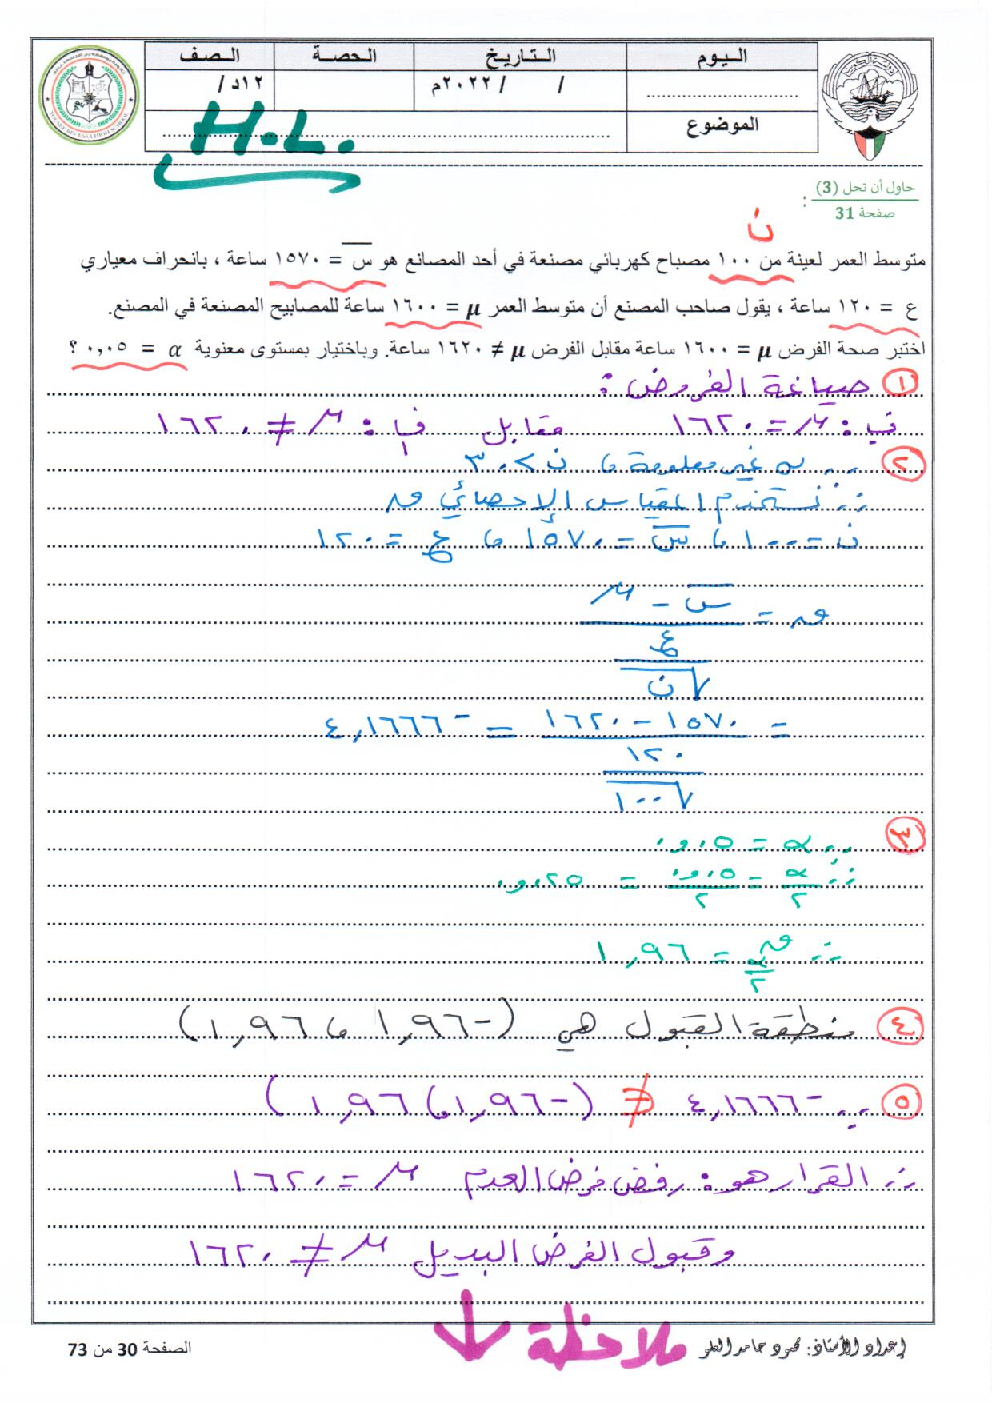 اليوم
التاريخ
الحصة
الصف
/ / ٢٠٢٢م
١٢د /
الموضوع
H.L.
حاول أن تحل (3)
صفحة 31 :
ن
متوسط العمر لعينة من ١٠٠ مصباح كهربائي مصنعة في أحد المصانع هو س̅ = ١٥٧٠ ساعة ، بانحراف معياري
ع = ١٢٠ ساعة ، يقول صاحب المصنع أن متوسط العمر μ = ١٦٠٠ ساعة للمصابيح المصنعة في المصنع.
اختبر صحة الفرض μ = ١٦٠٠ ساعة مقابل الفرض μ ≠ ١٦٢٠ ساعة. وباختيار بمستوى معنوية α = ٠,٠٥ ؟
① صياغة الفروض :
ف. : μ = ١٦٢٠ مقابل ف١ : μ ≠ ١٦٢٠
② ∵ σ غير معلومة ، ن > ٣٠
∴ نستخدم المقياس الإحصائي ق
ن = ١٠٠ ، س̅ = ١٥٧٠ ، ع = ١٢٠
ق = (س̅ - μ) / (ع / √ن)
= (١٥٧٠ - ١٦٢٠) / (١٢٠ / √١٠٠) = -٤,١٦٦٦
③ ∵ α = ٠,٠٥
∴ α/٢ = ٠,٠٥/٢ = ٠,٠٢٥
∴ ق α/٢ = ١,٩٦
④ منطقة القبول هي (-١,٩٦ ، ١,٩٦)
⑤ ∵ -٤,١٦٦٦ ∉ (-١,٩٦ ، ١,٩٦)
∴ القرار هو : رفض فرض العدم μ = ١٦٢٠
وقبول الفرض البديل μ ≠ ١٦٢٠
ملاحظة ↓
إعداد الأستاذ: محمود حامد العلو
الصفحة 30 من 73